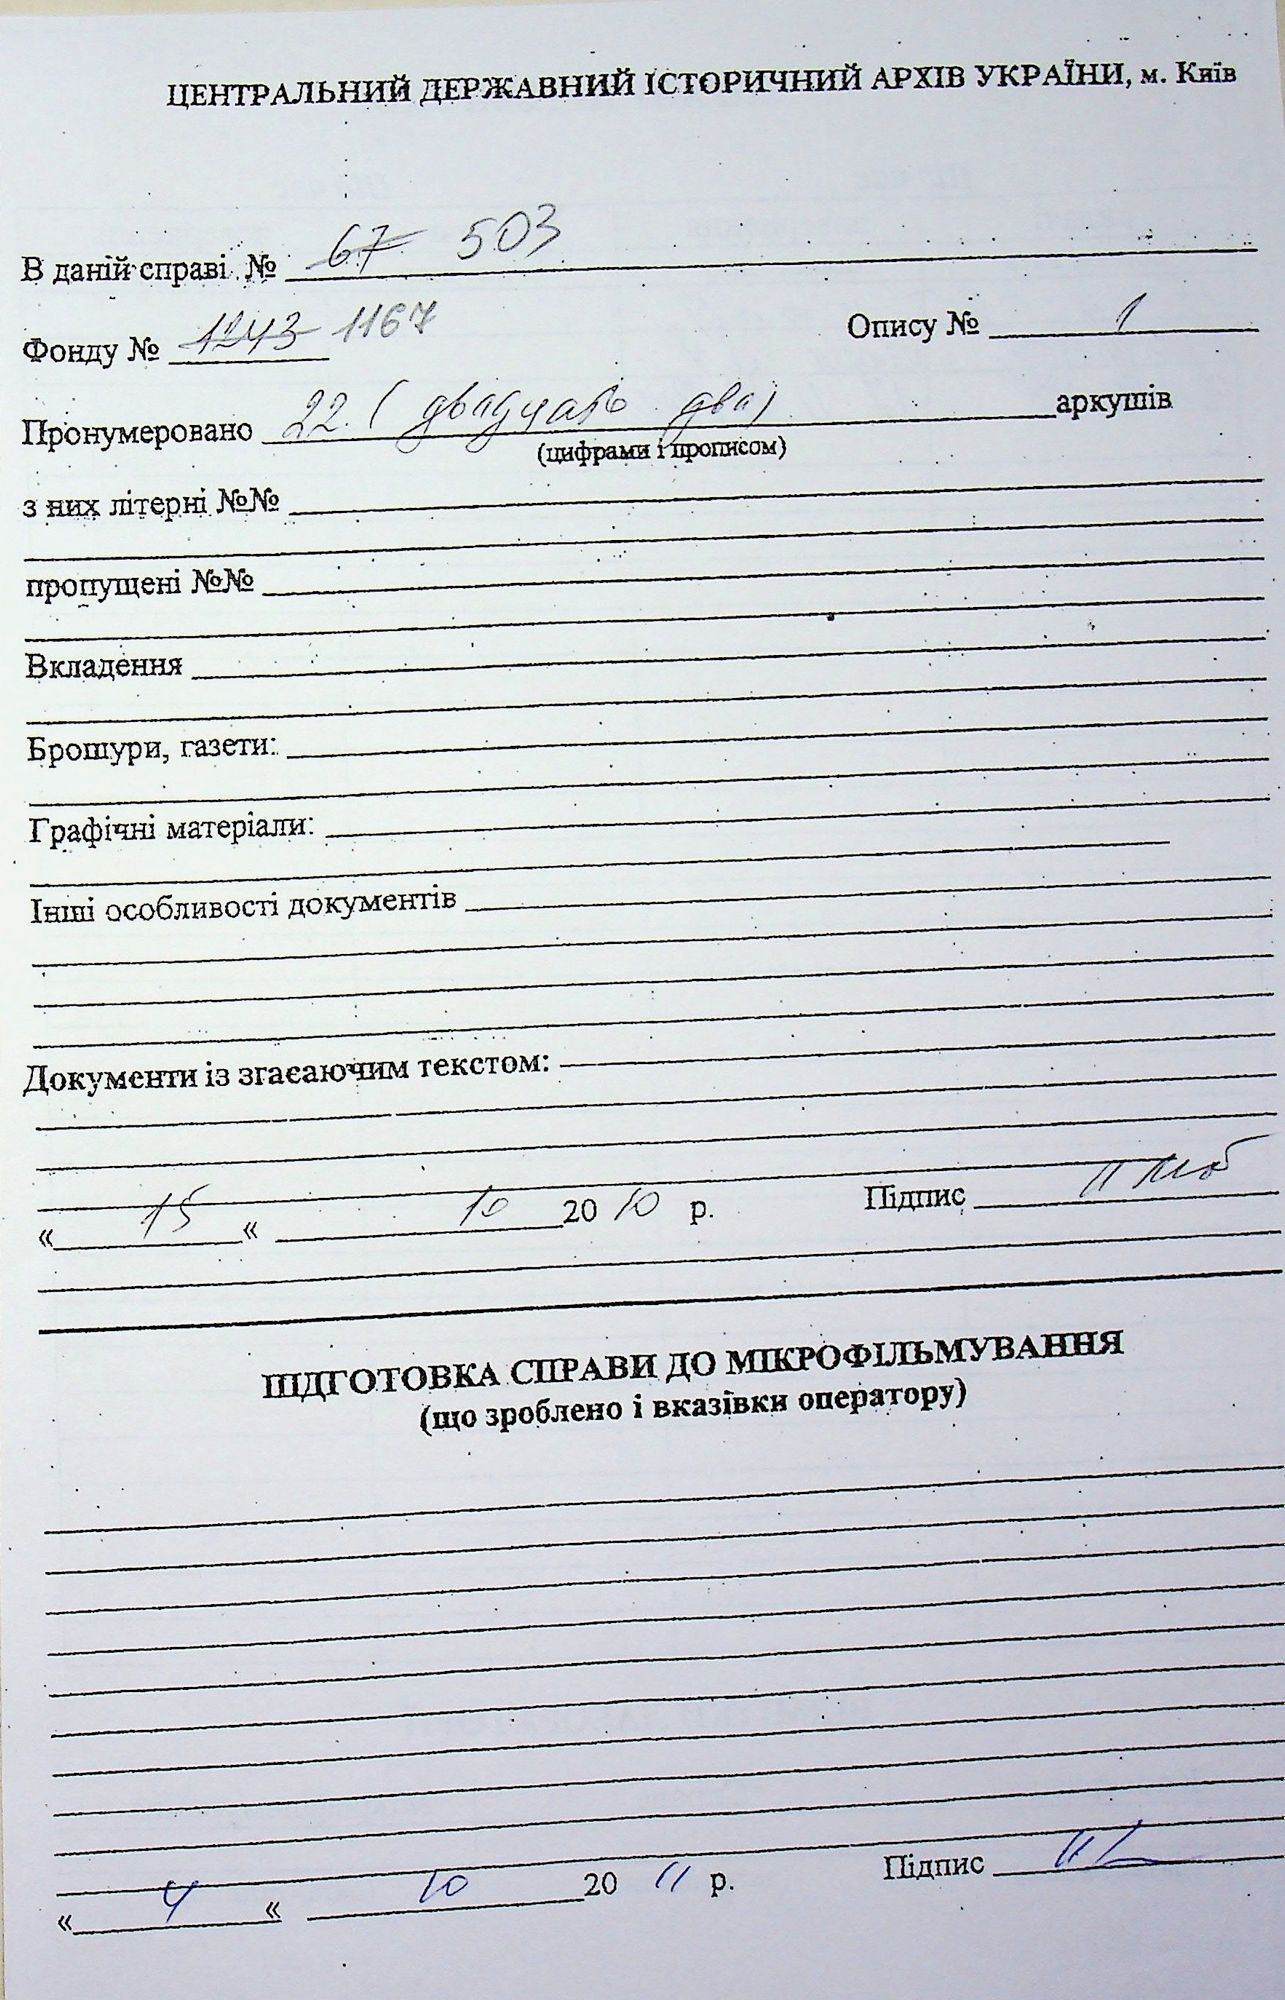 ЦЕНТРАЛЬНИЙ ДЕРЖАВНИЙ ІСТОРИЧНИЙ АРХІВ УКРАЇНИ, м. Київ
В даній справі № 67 503
Фонду № 1243 1167 Опису № 1
Пронумеровано 22 (двадцать два) аркушів
(цифрами і прописом)
з них літерні №№
пропущені №№
Вкладення
Брошури, газети:
Графічні матеріали:
Інші особливості документів
Документи із згасаючим текстом:
« 15 « 10 20 10 р. Підпис
ПІДГОТОВКА СПРАВИ ДО МІКРОФІЛЬМУВАННЯ
(що зроблено і вказівки оператору)
« 4 « 10 20 11 р. Підпис